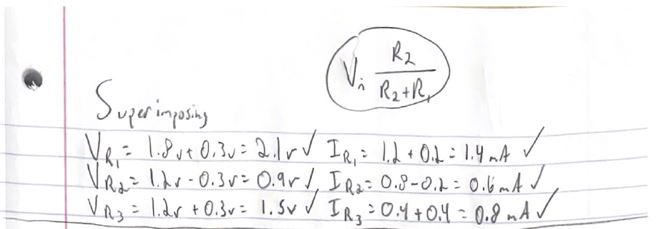 Vᵢₙ R₂ / (R₂+R₁)
Superimposing
V_R₁ = 1.8v + 0.3v = 2.1v ✓ I_R₁ = 1.2 + 0.2 = 1.4 mA ✓
V_R₂ = 1.2v - 0.3v = 0.9v ✓ I_R₂ = 0.8 - 0.2 = 0.6 mA ✓
V_R₃ = 1.2v + 0.3v = 1.5v ✓ I_R₃ = 0.4 + 0.4 = 0.8 mA ✓